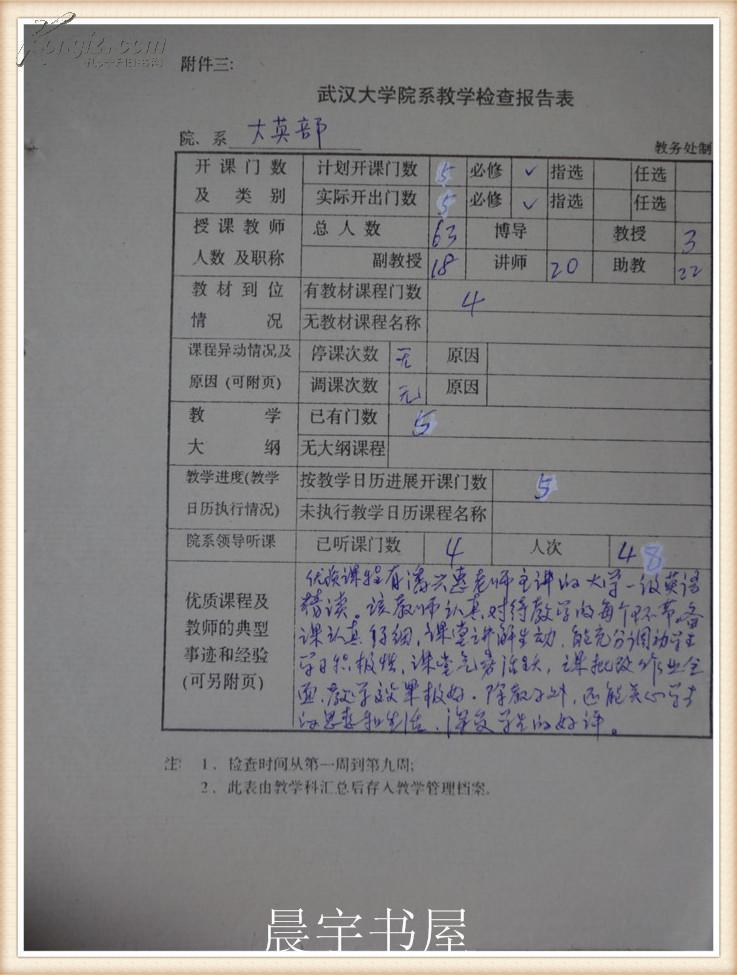 附件三:
武汉大学院系教学检查报告表
院、系 大英部
教务处制
开课门数 计划开课门数 5 必修 ✓ 指选 任选
及类别 实际开出门数 5 必修 ✓ 指选 任选
授课教师 总人数 63 博导 教授 3
人数及职称 副教授 18 讲师 20 助教 22
教材到位 有教材课程门数 4
情况 无教材课程名称
课程异动情况及 停课次数 无 原因
原因(可附页) 调课次数 无 原因
教学 已有门数 5
大纲 无大纲课程
教学进度(教学 按教学日历进展开课门数 5
日历执行情况) 未执行教学日历课程名称
院系领导听课 已听课门数 4 人次 48
优质课程及
教师的典型
事迹和经验
(可另附页)
优质课程有潘兴惠老师主讲的大学一级英语
精读。该教师认真对待教学的每个环节,备
课认真仔细,课堂讲解生动,能充分调动学生
学习积极性,课堂气氛活跃,课批改作业全
面,教学效果极好。除教书外,还能关心学生
的思想和生活,深受学生的好评。
注: 1、检查时间从第一周到第九周;
2、此表由教学科汇总后存入教学管理档案.
晨宇书屋